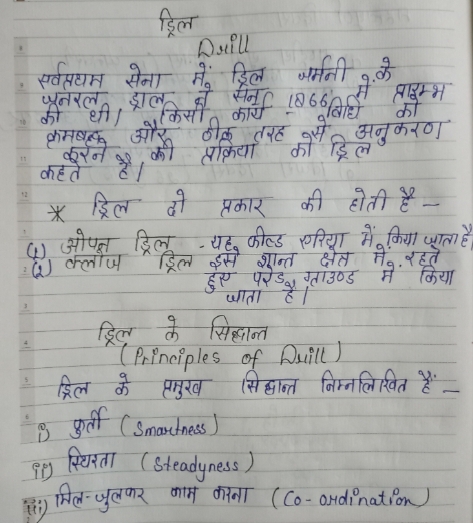 ड्रिल
Drill
सर्वप्रथम सेना में ड्रिल जर्मनी के
जनरल ड्राल ने सन् 1866 में प्रारम्भ
की थी। किसी कार्य - विधि को
क्रमबद्ध और ठीक तरह से अनुकरण
करने की प्रक्रिया को ड्रिल
कहते है।
* ड्रिल दो प्रकार की होती है —
(1) ओपन ड्रिल - यह फील्ड एरिया में किया जाता है
(2) क्लोज ड्रिल इसे शान्त क्षेत्र में रहते
हुए परेड ग्राउण्ड में किया
जाता है।
ड्रिल के सिद्धान्त
(Principles of Drill)
ड्रिल के प्रमुख सिद्धान्त निम्नलिखित हैं —
i) फुर्ती (Smartness)
ii) स्थिरता (Steadyness)
iii) मिल-जुलकर काम करना (Co-ordination)